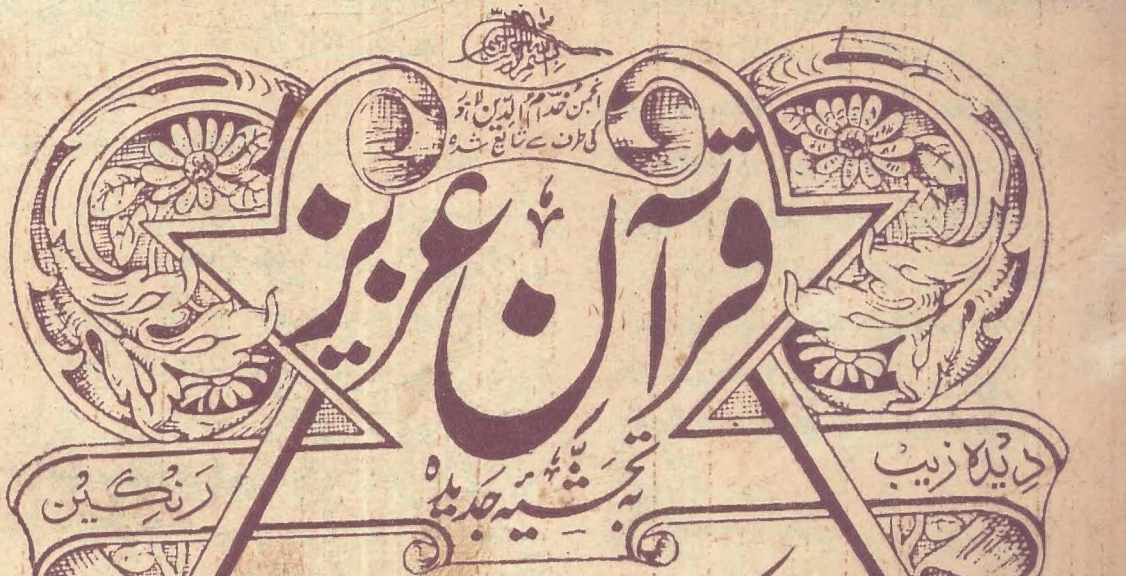 بسم اللہ الرحمن الرحیم
انجمن خدّام الدّین لاہور
کی طرف سے شائع شدہ
قرآن عزیز
بہ تحشیۂ جدیدہ
دیدہ زیب
رنگین